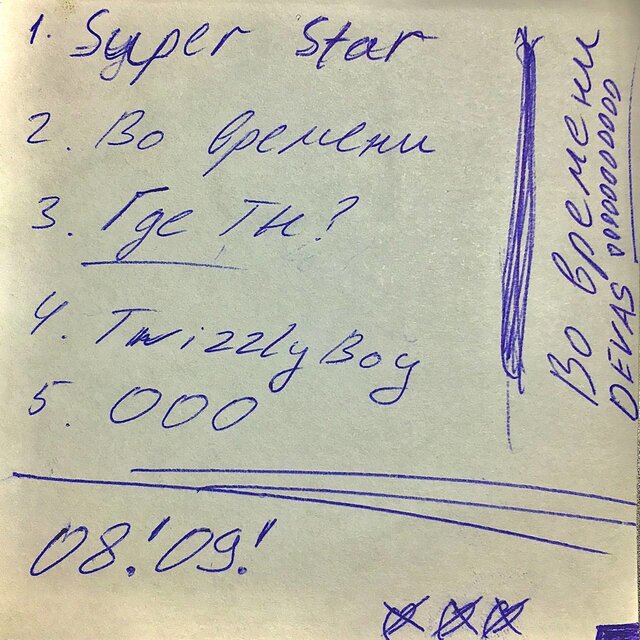 1. Syper Star
2. Во времени
3. Где ТН?
4. TwizzlyBoy
5. 000
08.'09.'
Во времени
DEVAS